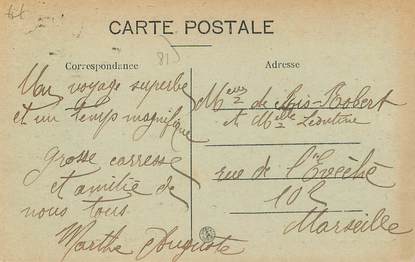 CARTE POSTALE
81
Correspondance
Adresse
Un voyage superbe
et un temps magnifique
grosse carresse
et amitié de
nous tous
Marthe Auguste
de Robert
et Melle Léontine
rue de l'Evêché
102
Marseille